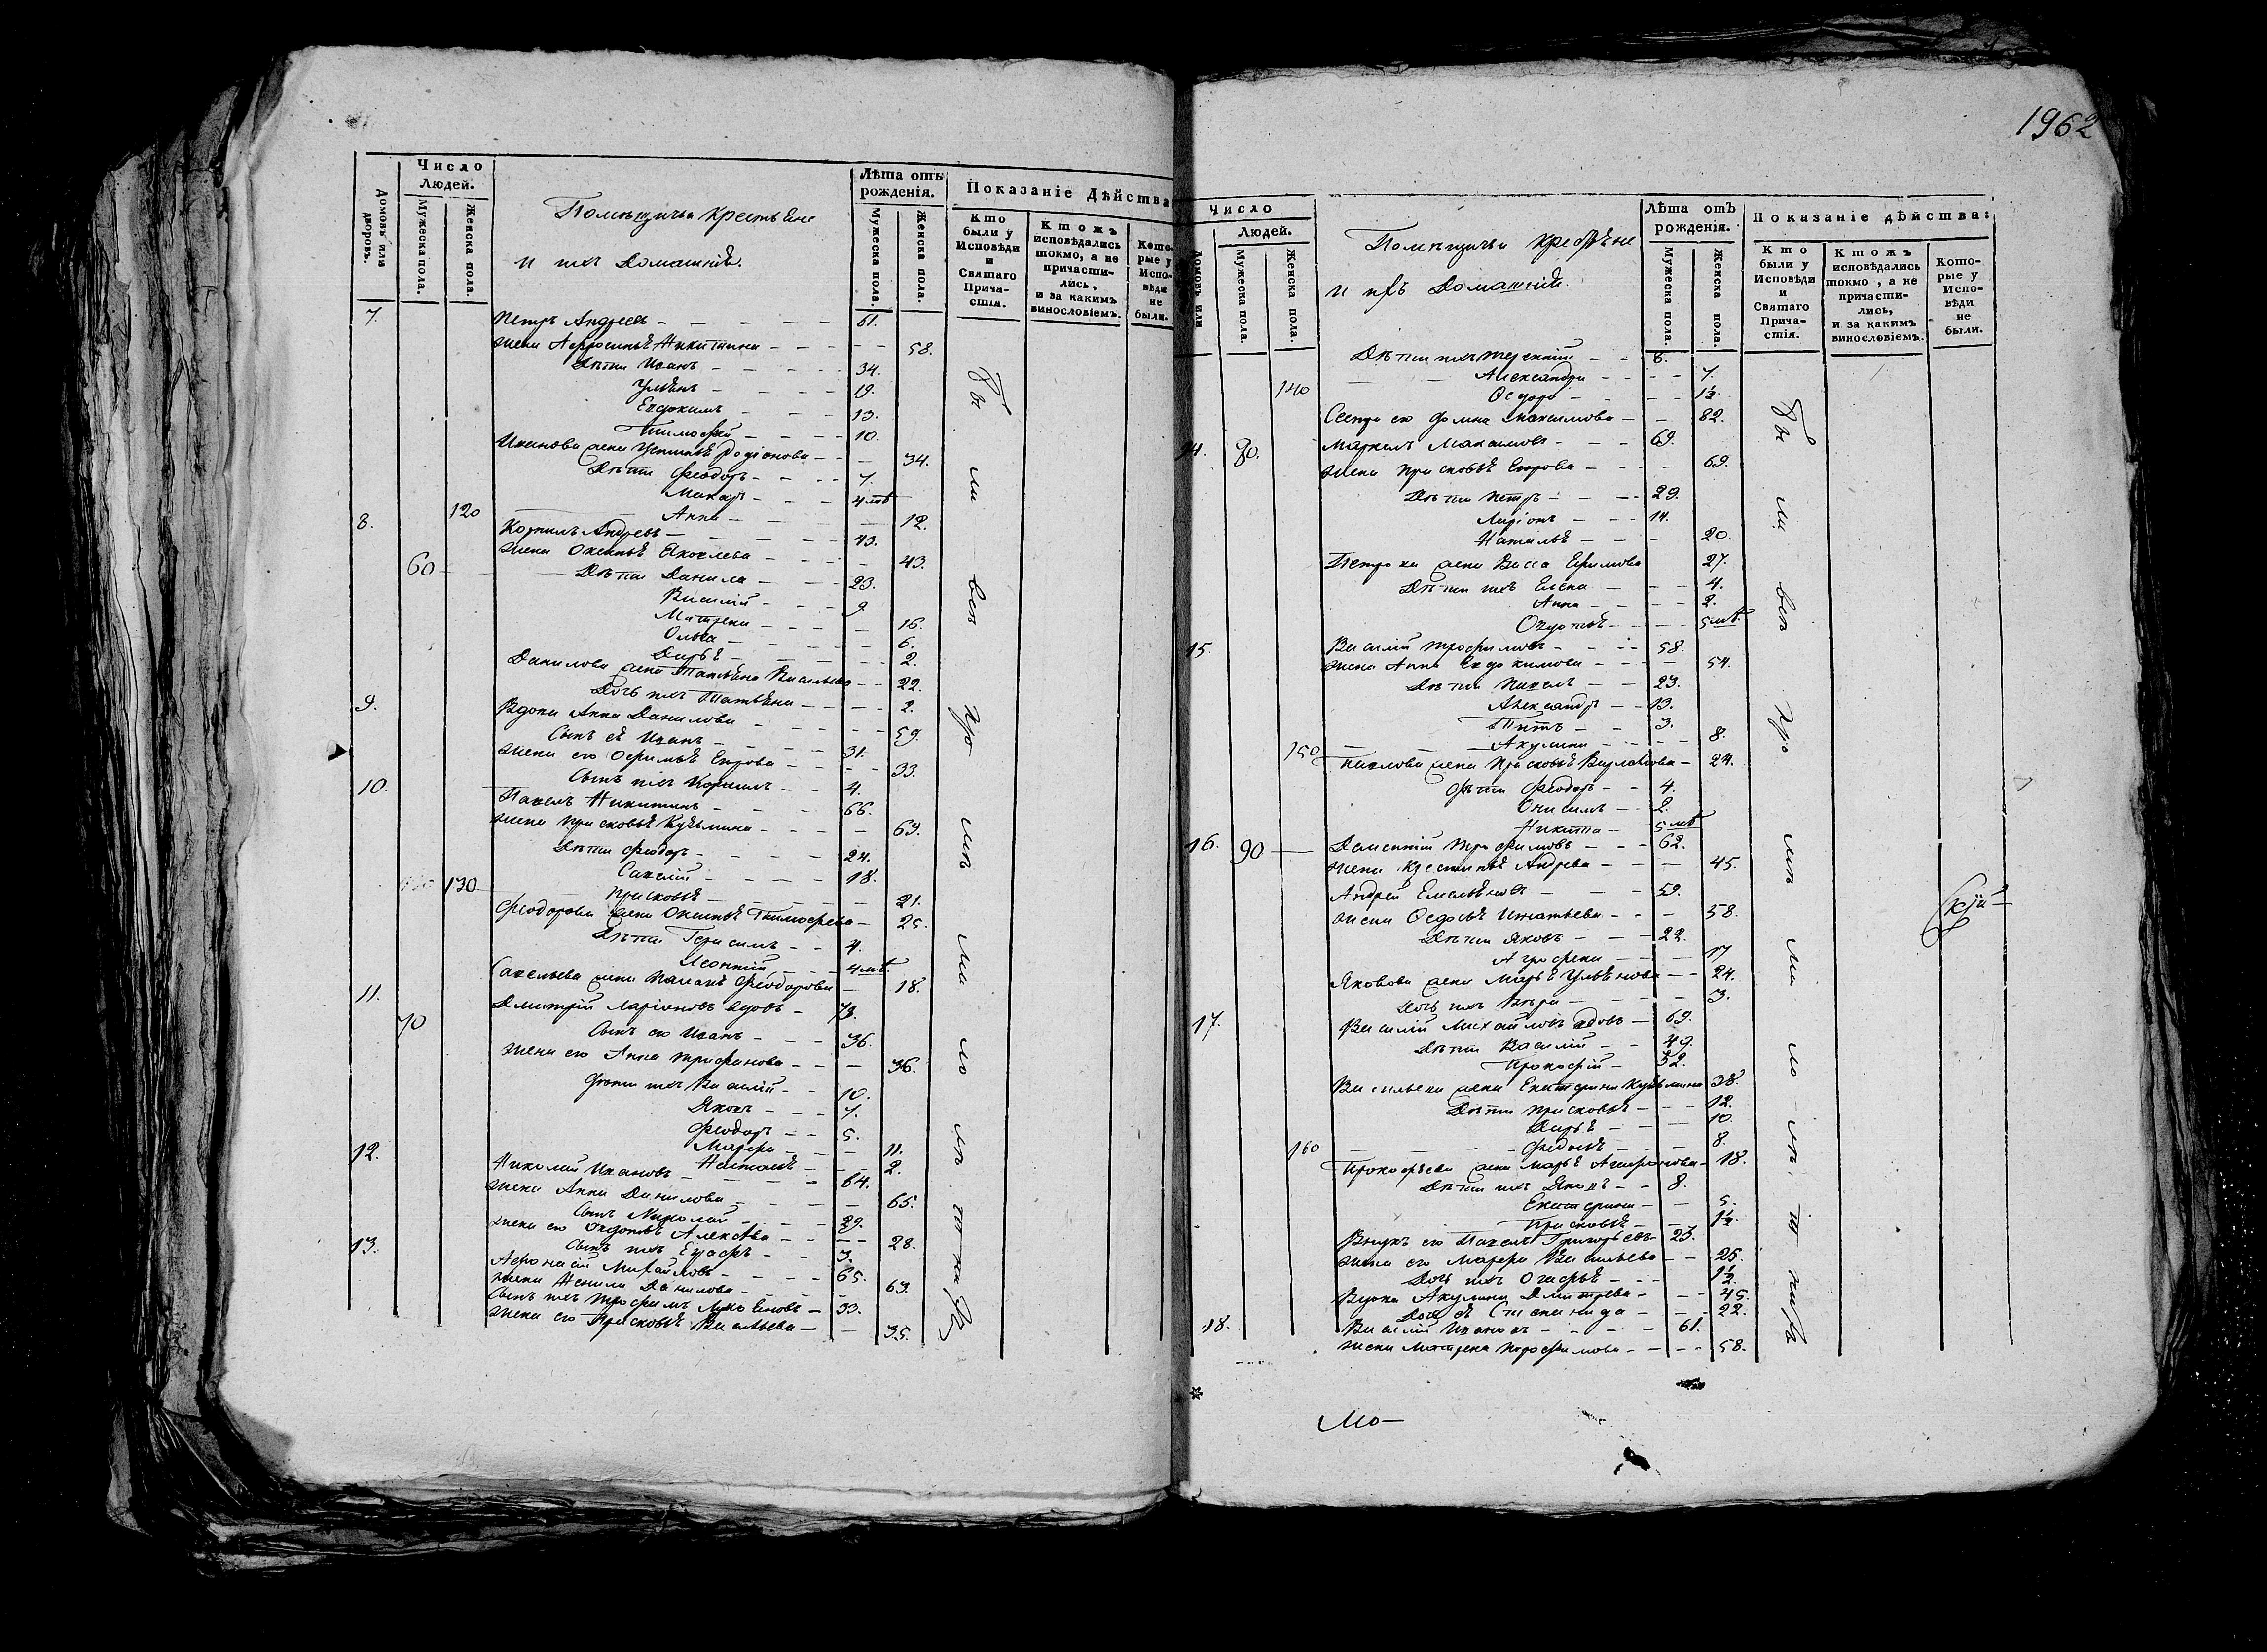 Домовъ или дворовъ.
Число Людей.
Мужеска пола.
Женска пола.
Помѣщичьи крестьяне
и ихъ домашніе.
Лѣта отъ рожденія.
Мужеска пола.
Женска пола.
Показаніе Дѣйства
Кто были у Исповѣди и Святаго Причастія.
Ктожъ исповѣдались токмо, а не причастились, и за какимъ винословіемъ.
Которые у Исповѣди не были.
7. Петръ Андреевъ 61.
жена Афросинья Никитина 58.
Дѣти Иванъ 34.
Ульянъ 19.
Евдокимъ 13.
Тимофей 10.
Иванова жена Устинья Родіонова 34.
Дѣти Ѳеодоръ 7.
Макаръ 4 мѣ
120 Анна 12.
8. Корнилъ Андреевъ 43.
жена Оксинья Яковлева 43.
60 Дѣти Данила 23.
Василій 9
Матрена 16.
Ольга 6.
Дарья 2.
Данилова жена Татьяна Васильева 22.
Дочь ихъ Татьяна 2.
9. Вдова Анна Данилова 59.
Сынъ ея Иванъ 31.
жена его Офимья Егорова 33.
Сынъ ихъ Корнилъ 4.
10. Павелъ Никитинъ 66.
жена Прасковья Кузьмина 69.
Дѣти Ѳеодоръ 24.
Савелій 18.
130 Прасковья 21.
Ѳеодорова жена Оксинья Тимофеева 25.
Дѣти Герасимъ 4.
Леонтій 4 мѣ.
Савельева жена Ѳеодорова 18.
11. Дмитрій Ларіоновъ вдовъ 73.
70 Сынъ его Иванъ 36.
жена его Анна Трифанова 36.
Дѣти ихъ Василій 10.
Яковъ 7.
Ѳеодоръ 5.
Марфа 11.
Наталья 2.
12. Николай Ивановъ 64.
жена Анна Данилова 65.
Сынъ Николай 29.
жена его Авдотья Алексѣева 28.
Сынъ ихъ 3.
13. Афонасій Михайловъ 65.
жена Ненила Данилова 63.
Сынъ ихъ Трофимъ 33.
жена его Прасковья Васильева 35.
Бы ли всѣ
1962
Домовъ или
Число Людей.
Мужеска пола.
Женска пола.
Помѣщичьи крестьяне
и ихъ домашніе.
Лѣта отъ рожденія.
Мужеска пола.
Женска пола.
Показаніе дѣйства:
Кто были у Исповѣди и Святаго Причастія.
Ктожъ исповѣдались токмо, а не причастились, и за какимъ винословіемъ.
Которые у Исповѣди не были.
Дѣти ихъ Терентій 8.
Александра 7.
140 Ѳедора 1½.
Сестра его Домна Максимова 82.
14. 80. Маркелъ Максимовъ 69.
жена Прасковья Егорова 69.
Дѣти Петръ 29.
Ларіонъ 14.
Наталья 20.
Петрова жена Васса Ефимова 27.
Дѣти ихъ Елена 4.
Анна 2.
Авдотья 5 мѣ.
15. Василій Трофимовъ 58.
жена Анна Евдокимова 54.
Дѣти Павелъ 23.
Александръ 13.
Титъ 3.
150 Акулина 8.
Павлова жена Прасковья 24.
Дѣти Ѳеодоръ 4.
Онисимъ 2.
Никита 5 мѣ
16. 90 Дементій Трофимовъ 62.
жена Крестинья Андреева 45.
Андрей Емельяновъ 59.
жена Ѳедосья Игнатьева 58.
Дѣти Яковъ 22.
Агрофена 17
Яковова жена Марья Ульянова 24.
Дочь ихъ Вѣра 3.
17. Василій Михайловъ вдовъ 69.
Дѣти Василій 49.
Прокофій 32.
Васильева жена Екатерина Кузьмина 38.
Дѣти Прасковья 12.
Дарья 10.
160 Ѳедосья 8.
Прокофьева жена Марья 18.
Дѣти ихъ Яковъ 8.
Екатерина 5.
Прасковья 1½.
Внукъ его Павелъ Григорьевъ 23.
жена его Марфа Васильева 25.
Дочь ихъ 1½.
Вдова Акулина Дмитрева 45.
Дочь ея Степанида 22.
18. Василій Ивановъ 61.
жена Матрена Трофимова 58.
Бы ли всѣ
Мо-